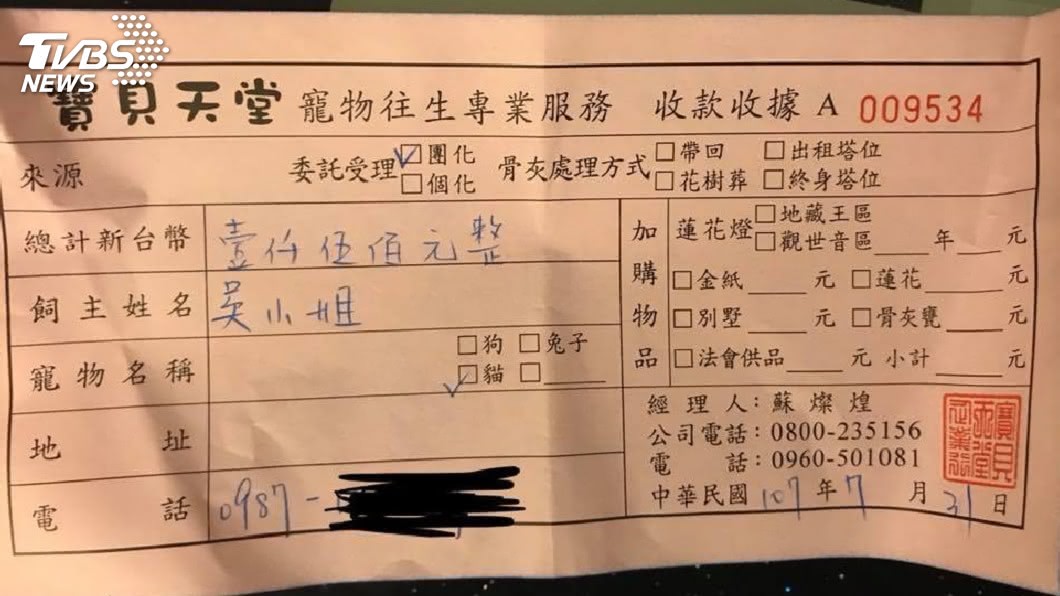 TVBS
NEWS
寶貝天堂 寵物往生專業服務 收款收據 A 009534
來源 委託受理 ☑團化 □個化 骨灰處理方式 □帶回 □出租塔位 □花樹葬 □終身塔位
總計新台幣 壹仟伍佰元整
飼主姓名 吳小姐
寵物名稱 □狗 □兔子
☑貓 □____
地址
電話 0987-
加購物品
蓮花燈 □地藏王區
□觀世音區____年____元
□金紙____元 □蓮花____元
□別墅____元 □骨灰甕____元
□法會供品____元 小計____元
經理人：蘇燦煌
公司電話：0800-235156
電話：0960-501081
中華民國107年7月31日
寶貝
天堂